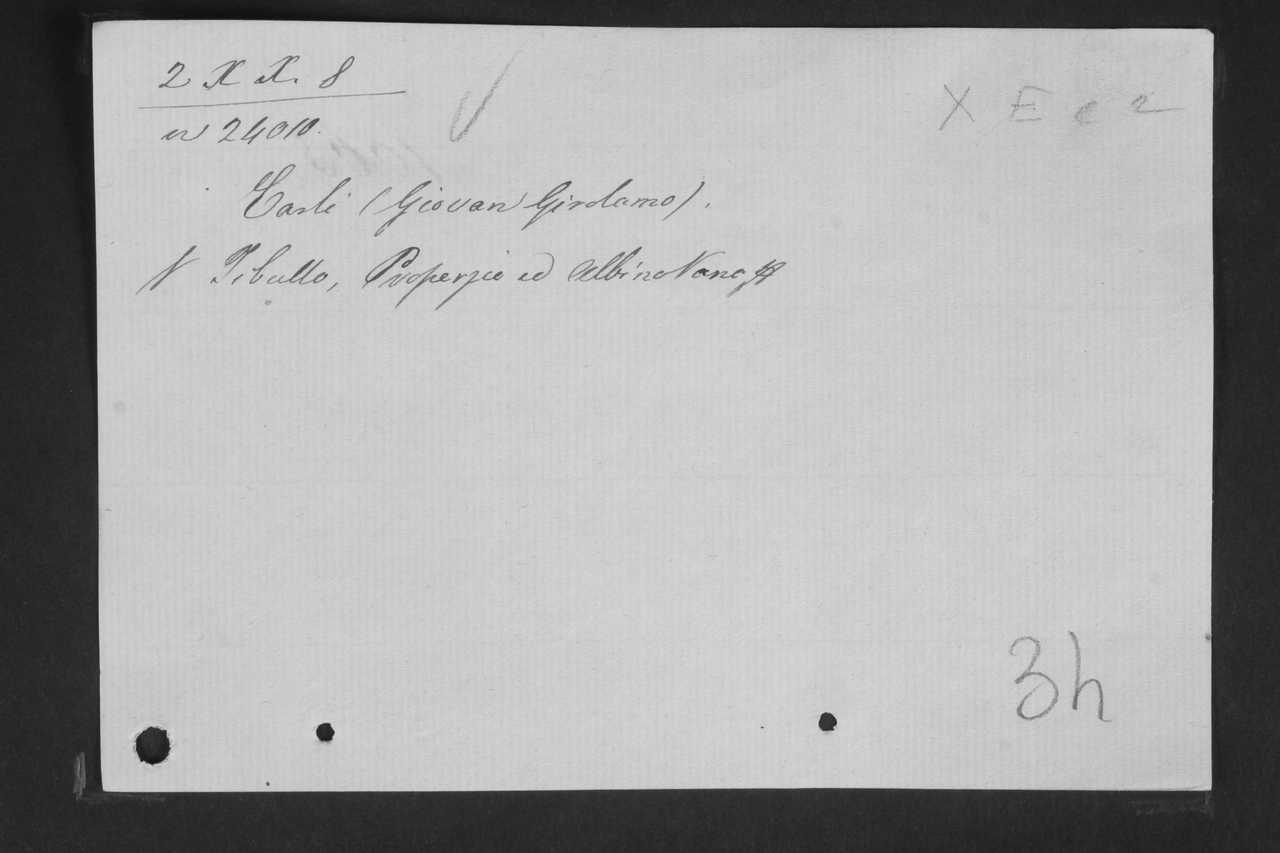 2 X X. 8
X E e 2
n 24010.
Carli (Giovan Girolamo).
V Tibullo, Properzio ed Albinovano
3h